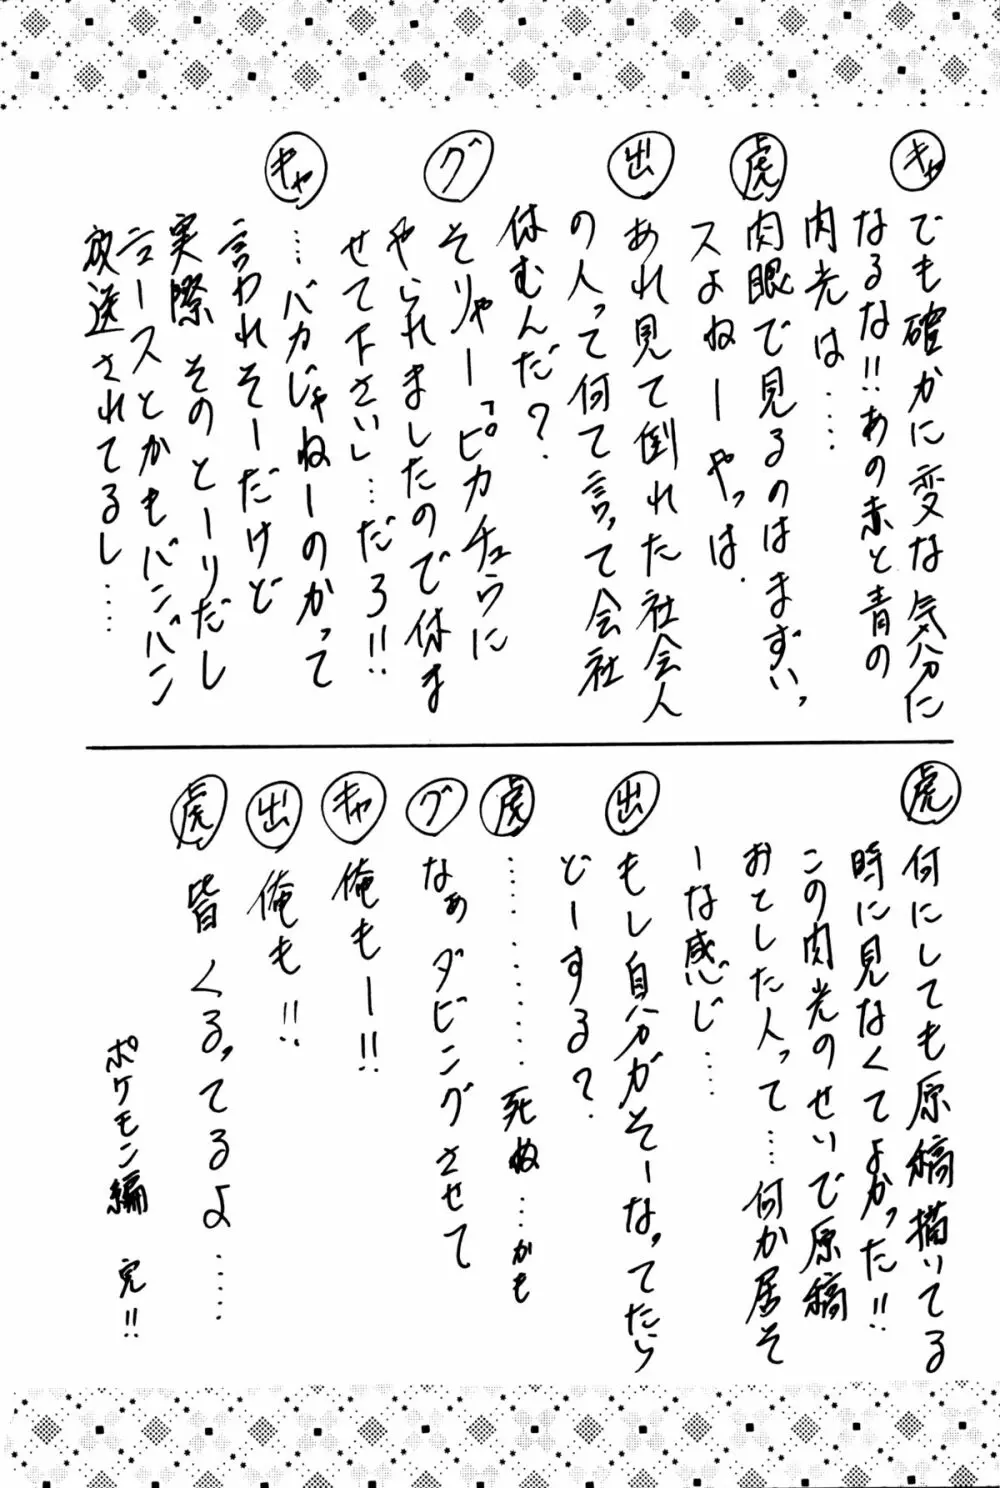 キャ でも確かに変な気分に
なるな!!あの赤と青の
閃光は……
虎 肉眼で見るのはまずいっ
スよねーやっぱ.
出 あれ見て倒れた社会人
の人って何て言って会社
休むんだ?
グ そりゃー「ピカチュウに
やられましたので休ま
せて下さい」…だろ!!
キャ ……バカじゃねーのかって
言われそーだけど
実際そのとーりだし
ニュースとかもバンバン
放送されてるし……
虎 何にしても原稿描いてる
時に見なくてよかった!!
この閃光のせいで原稿
おとした人って…何か居そ
ーな感じ……
出 もし自分がそーなってたら
どーする?
虎 …………死ぬ…かも
グ なぁダビングさせて
キャ 俺もー!!
出 俺も!!
虎 皆くるってるよ……
ポケモン編 完!!